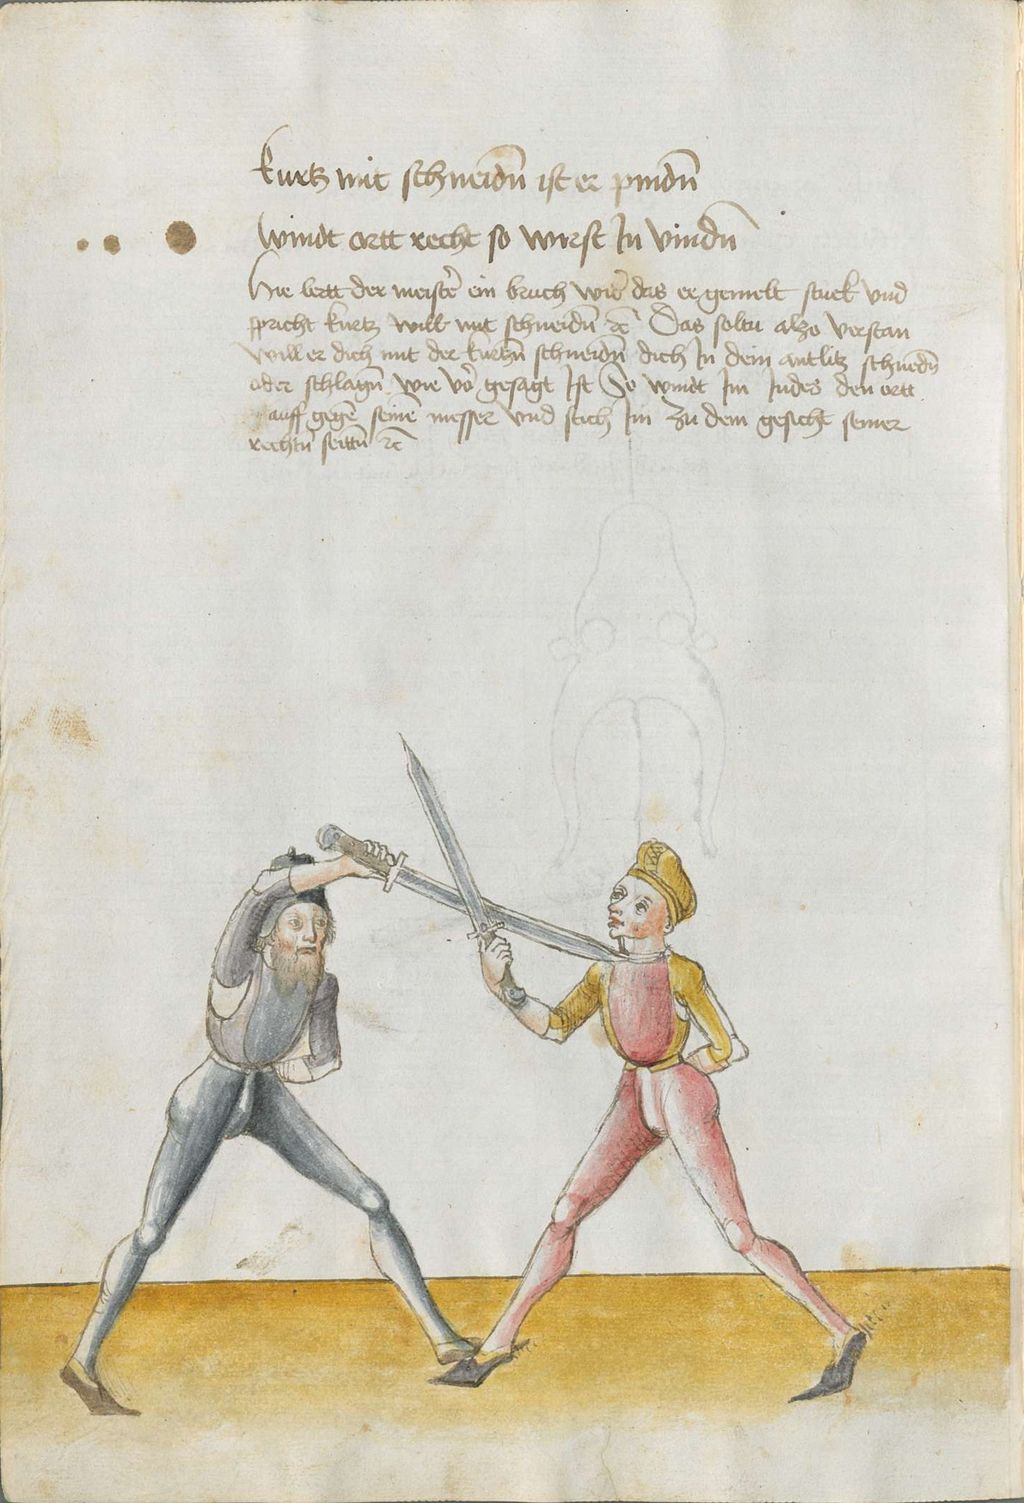 kurtz mit schneidn̄ ist er pindn̄
Windt ortt recht so wirst In vindn̄
Hie lertt der meistẽ ein bruch wid̃ das er gemelt stuck vnd
spricht kurtz will mit schneidn̄ ꝛc Das soltu alzo verstan
will er dich mit der kurtzn̄ schneidn̄ dich In dein antlitz schneidn̄
oder schlagn̄ wie vor gesagt Ist So windt Im Indes den ortt
auff gegẽ seinẽ messer vnd stich Im zu dem gesicht seiner
rechtn̄ seittn̄ ꝛc